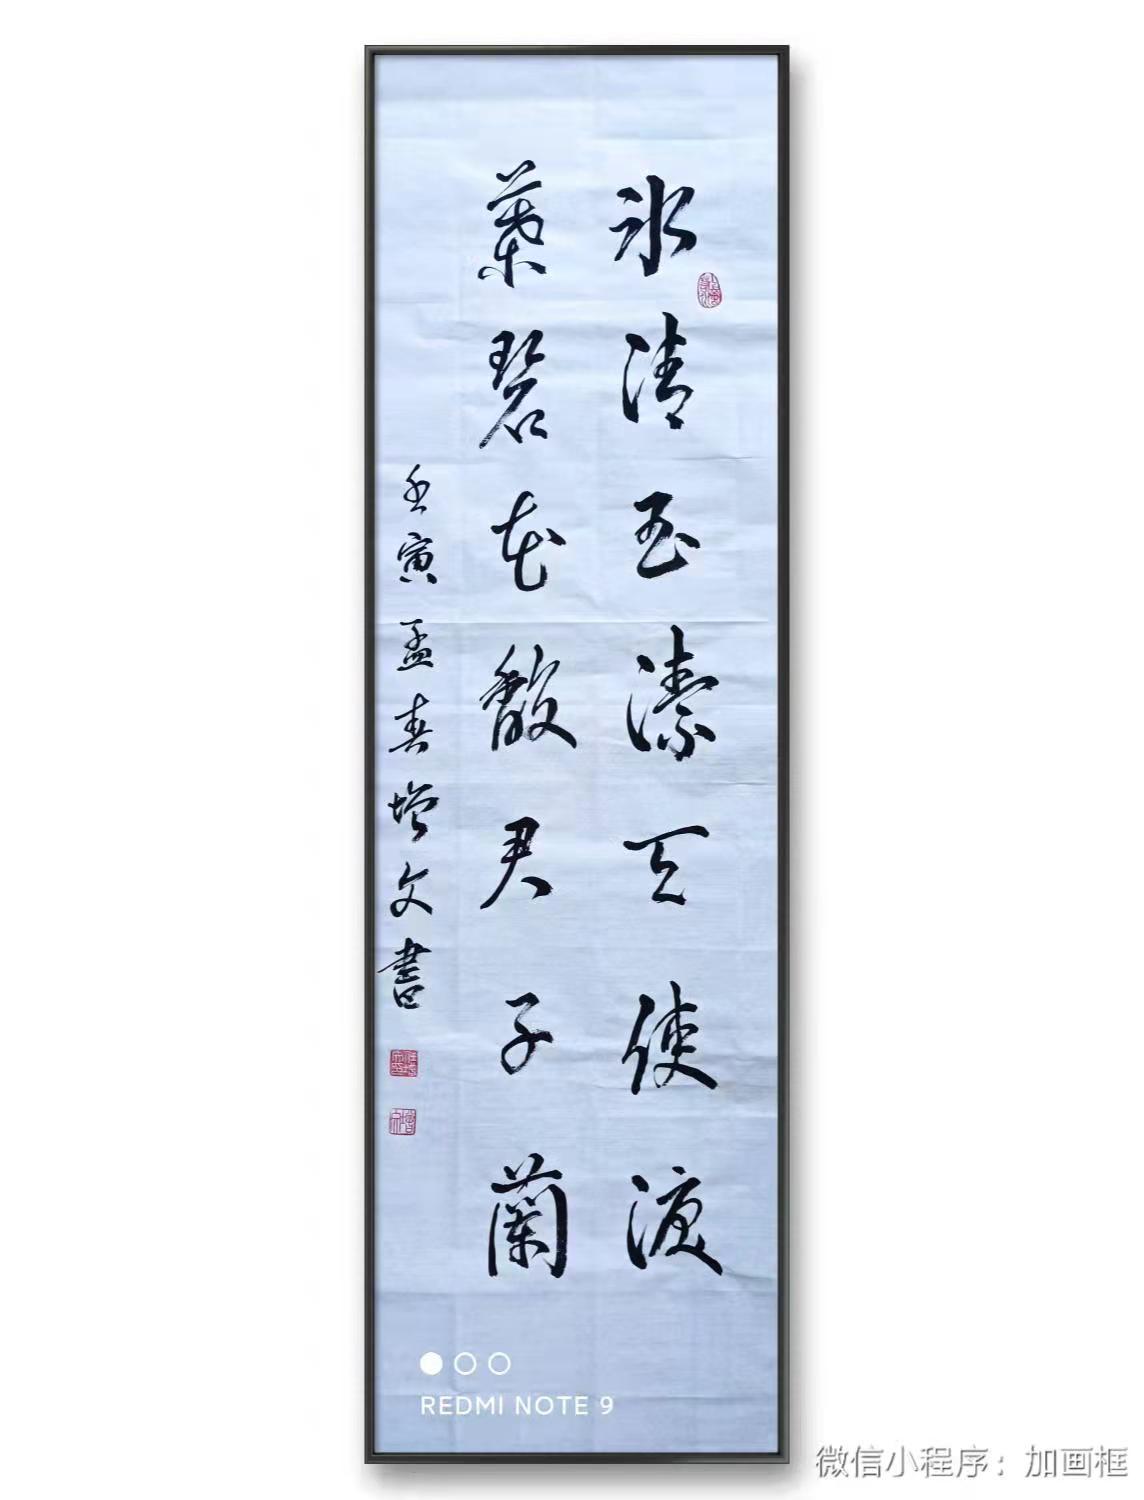 冰清玉潔天使淚
葉碧花馥君子蘭
壬寅孟春增文書
REDMI NOTE 9
微信小程序：加画框